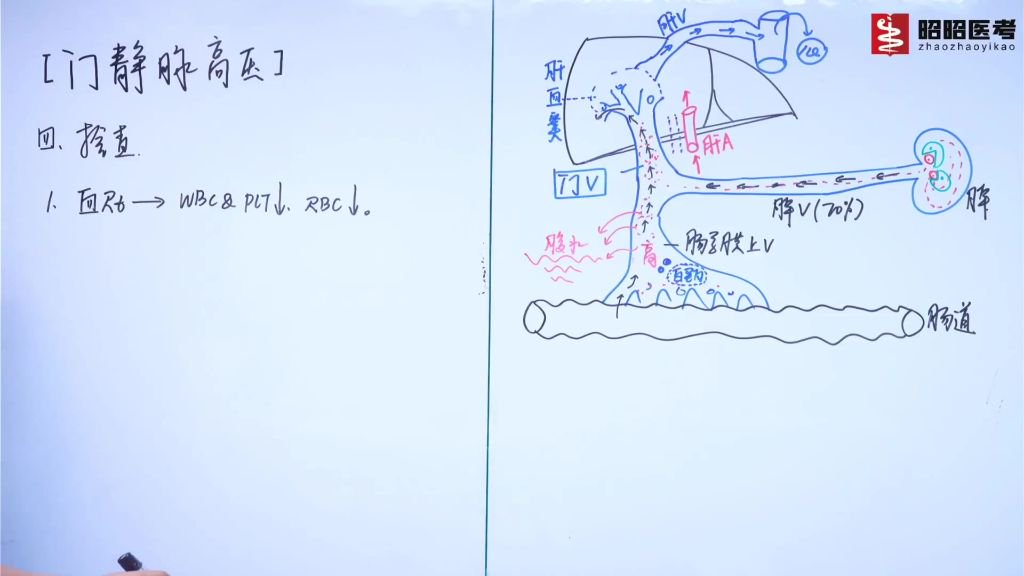 [门静脉高压]
四、检查.
1. 血Rt → WBC & PLT↓. RBC↓。
昭昭医考
zhaozhaoyikao
肝V
肝血窦
肝A
门V
脾V(20%)
脾
腹水
高
肠系膜上V
白蛋白
肠道